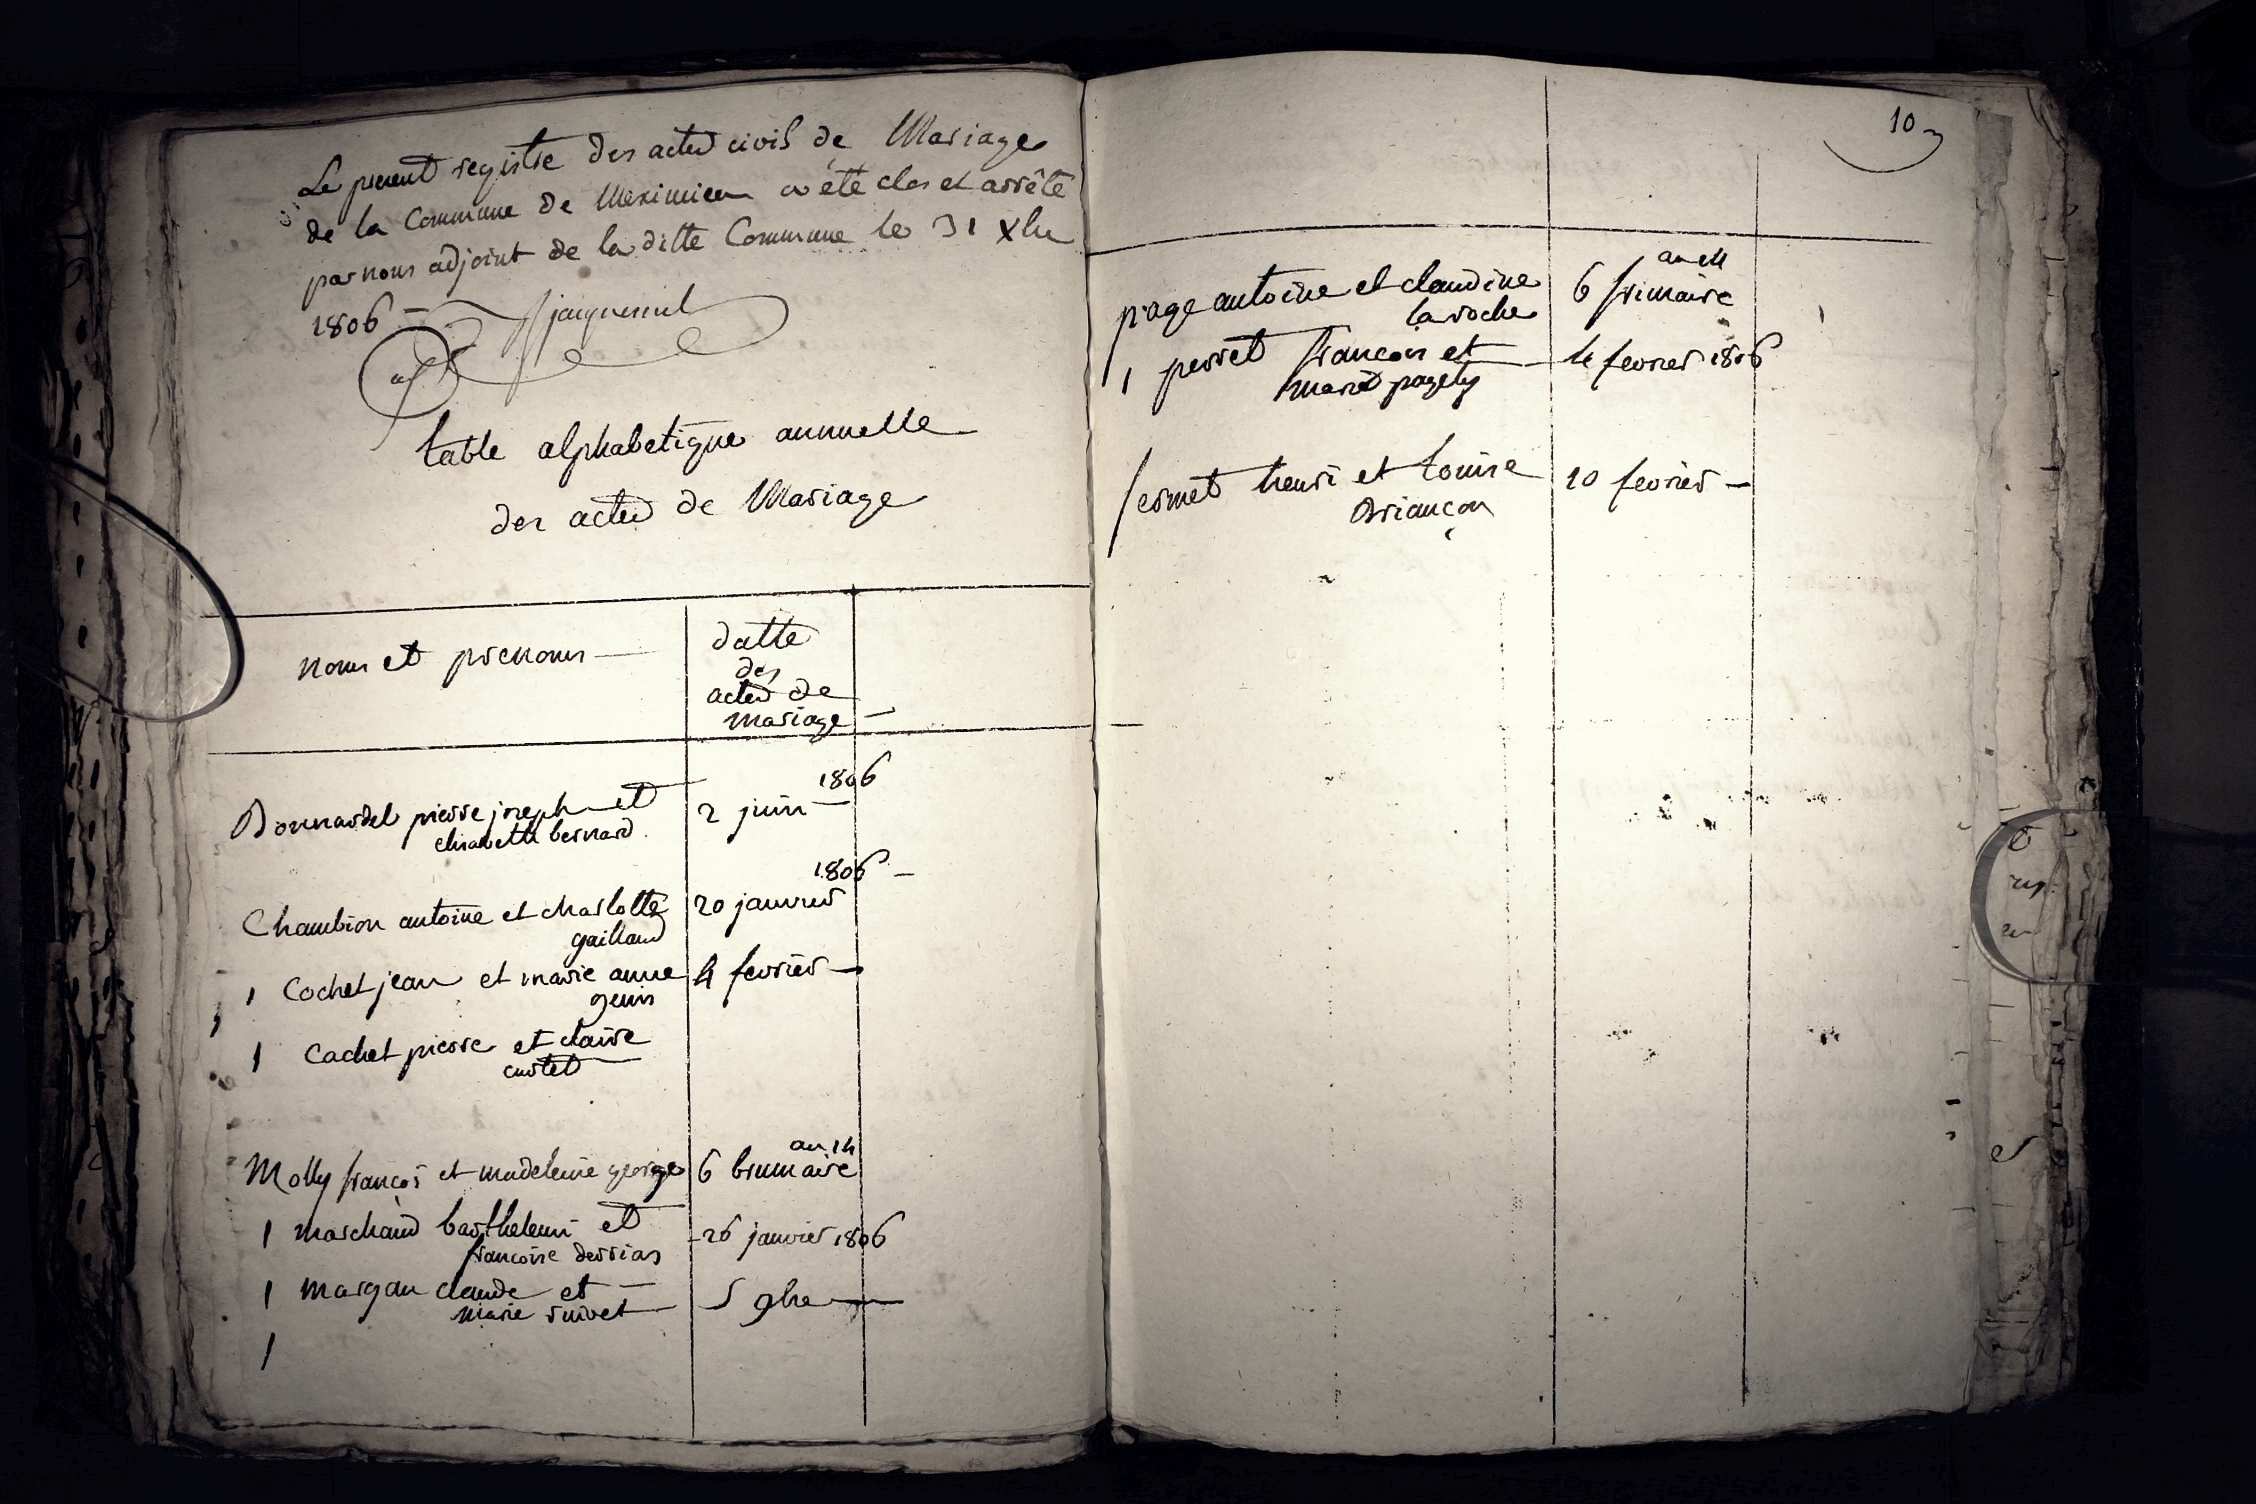 Le present registre des actes civils de Mariage
de la Commune de Meximieux a été clos et arrêté
par nous adjoint de la ditte Commune le 31 Xbre
1806
table alphabetique annuelle
des actes de Mariage
noms et prenoms
datte
des
actes de
mariage
1806
Bonnardel pierre joseph et 2 juin
elisabeth bernard
1806
Chambion antoine et charlotte 20 janvier
gaillard
1 Cochet jean et marie anne 4 fevrier
genin
1 Cachet pierre et claire
curtet
an 14
Molly francois et madeleine george 6 brumaire
1 marchand barthelemi et 26 janvier 1806
francoise derrias
1 margan claude et 5 9bre
marie ruivet
1
10
an 14
page antoine et claudine 6 frimaire
laroche
1 perret francois et 4 fevrier 1806
marie
sermet henri et louise 10 fevrier
Briançon